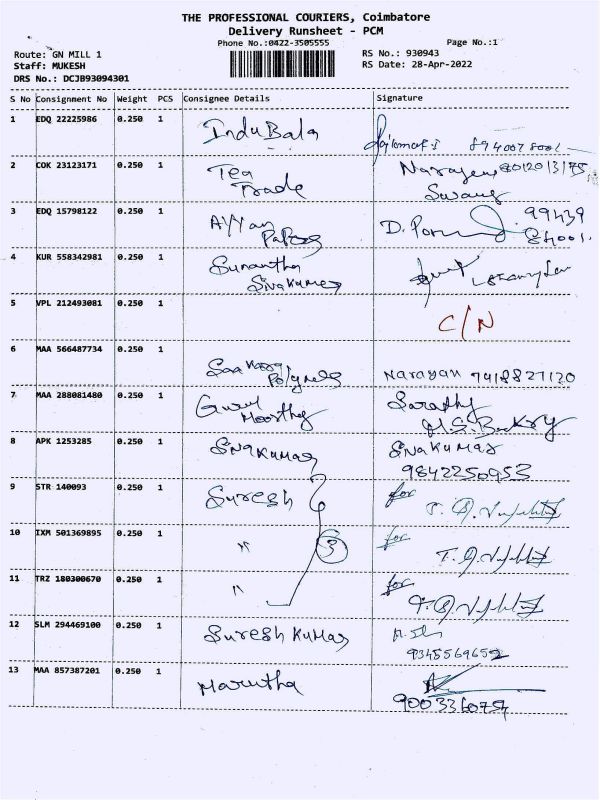 THE PROFESSIONAL COURIERS, Coimbatore
Delivery Runsheet - PCM
Phone No.:0422-3505555
Page No.:1
Route: GN MILL 1
RS No.: 930943
Staff: MUKESH
RS Date: 28-Apr-2022
DRS No.: DCJB93094301
S No Consignment No Weight PCS Consignee Details Signature
1 EDQ 22225986 0.250 1 InduBala
2 COK 23123171 0.250 1 Tea Narayan 8012013175
Trade
3 EDQ 15798122 0.250 1 Ayyan D. 99439
84001
4 KUR 558342981 0.250 1 Sumantha
Sivakumar
5 VPL 212493081 0.250 1 C/N
6 MAA 566487734 0.250 1 Narayan 9418827120
Polymers
7 MAA 288081480 0.250 1 Guru Sarathy
Moorthy M.S.
8 APK 1253285 0.250 1 Sivakumar Sivakumar
9842250953
9 STR 140093 0.250 1 Suresh for
10 IXM 501369895 0.250 1 " 3 for
11 TRZ 180300670 0.250 1 " for
12 SLM 294469100 0.250 1 Suresh Kumar
9345569652
13 MAA 857387201 0.250 1 Marutha
9003360754